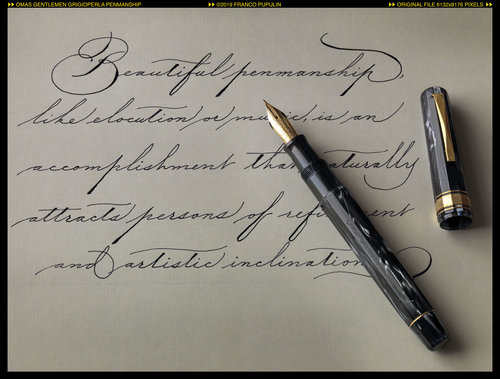 OMAS GENTLEMEN GRIGIOPERLA PENMANSHIP ©2019 FRANCO PUPULIN ORIGINAL FILE 6132x8176 PIXELS
Beautiful penmanship,
like elocution or music, is an
accomplishment that naturally
attracts persons of refinement
and artistic inclination